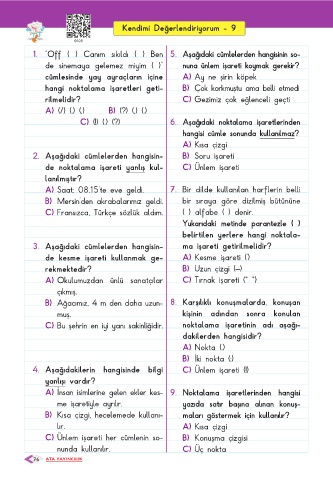 Kendimi Değerlendiriyorum - 9
1. "Off ( ) Canım sıkıldı ( ) Ben
de sinemaya gelemez miyim ( )"
cümlesinde yay ayraçların içine
hangi noktalama işaretleri geti-
rilmelidir?
A) (/) (.) (,) B) (?) (.) (.)
C) (!) (.) (?)
2. Aşağıdaki cümlelerden hangisin-
de noktalama işareti yanlış kul-
lanılmıştır?
A) Saat 08.15'te eve geldi.
B) Mersin'den akrabalarımız geldi.
C) Fransızca, Türkçe sözlük aldım.
3. Aşağıdaki cümlelerden hangisin-
de kesme işareti kullanmak ge-
rekmektedir?
A) Okulumuzdan ünlü sanatçılar
çıkmış.
B) Ağacımız, 4 m den daha uzun-
muş.
C) Bu şehrin en iyi yanı sakinliğidir.
4. Aşağıdakilerin hangisinde bilgi
yanlışı vardır?
A) İnsan isimlerine gelen ekler kes-
me işaretiyle ayrılır.
B) Kısa çizgi, hecelemede kullanı-
lır.
C) Ünlem işareti her cümlenin so-
nunda kullanılır.
5. Aşağıdaki cümlelerden hangisinin so-
nuna ünlem işareti koymak gerekir?
A) Ay ne şirin köpek
B) Çok korkmuştu ama belli etmedi
C) Gezimiz çok eğlenceli geçti
6. Aşağıdaki noktalama işaretlerinden
hangisi cümle sonunda kullanılmaz?
A) Kısa çizgi
B) Soru işareti
C) Ünlem işareti
7. Bir dilde kullanılan harflerin belli
bir sıraya göre dizilmiş bütününe
( ) alfabe ( ) denir.
Yukarıdaki metinde parantezle ( )
belirtilen yerlere hangi noktala-
ma işareti getirilmelidir?
A) Kesme işareti (')
B) Uzun çizgi (—)
C) Tırnak işareti (" ")
8. Karşılıklı konuşmalarda, konuşan
kişinin adından sonra konulan
noktalama işaretinin adı aşağı-
dakilerden hangisidir?
A) Nokta (.)
B) İki nokta (:)
C) Ünlem işareti (!)
9. Noktalama işaretlerinden hangisi
yazıda satır başına alınan konuş-
maları göstermek için kullanılır?
A) Kısa çizgi
B) Konuşma çizgisi
C) Üç nokta
76 ATA YAYINCILIK